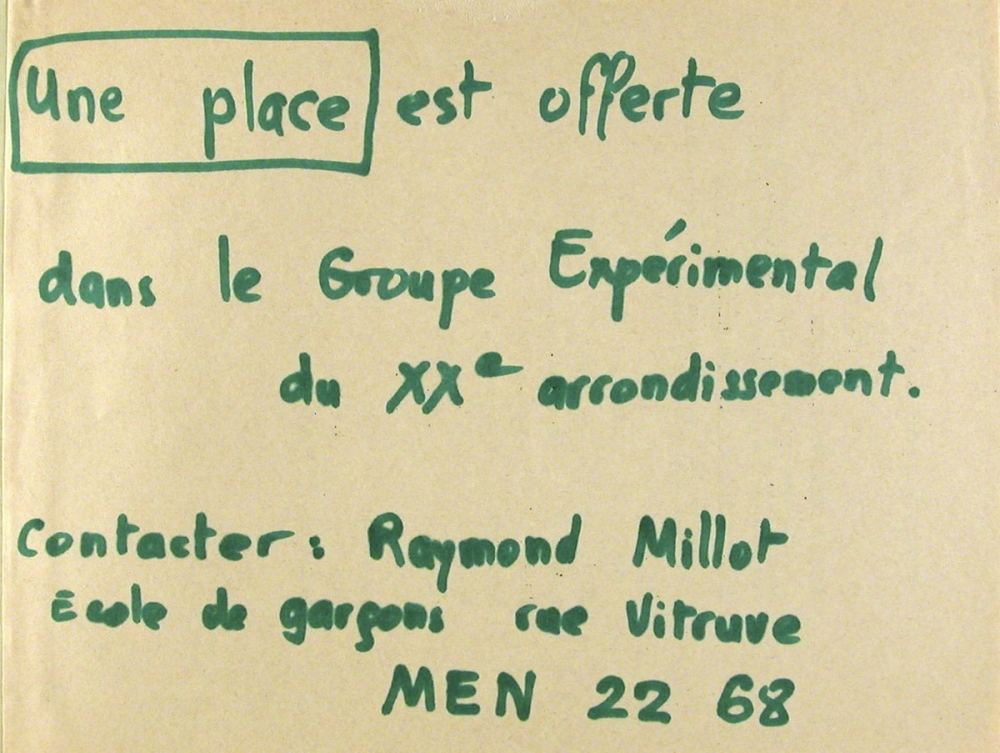 Une place est offerte
dans le Groupe Expérimental
du XXe arrondissement.
Contacter : Raymond Millot
Ecole de garçons rue Vitruve
MEN 22 68